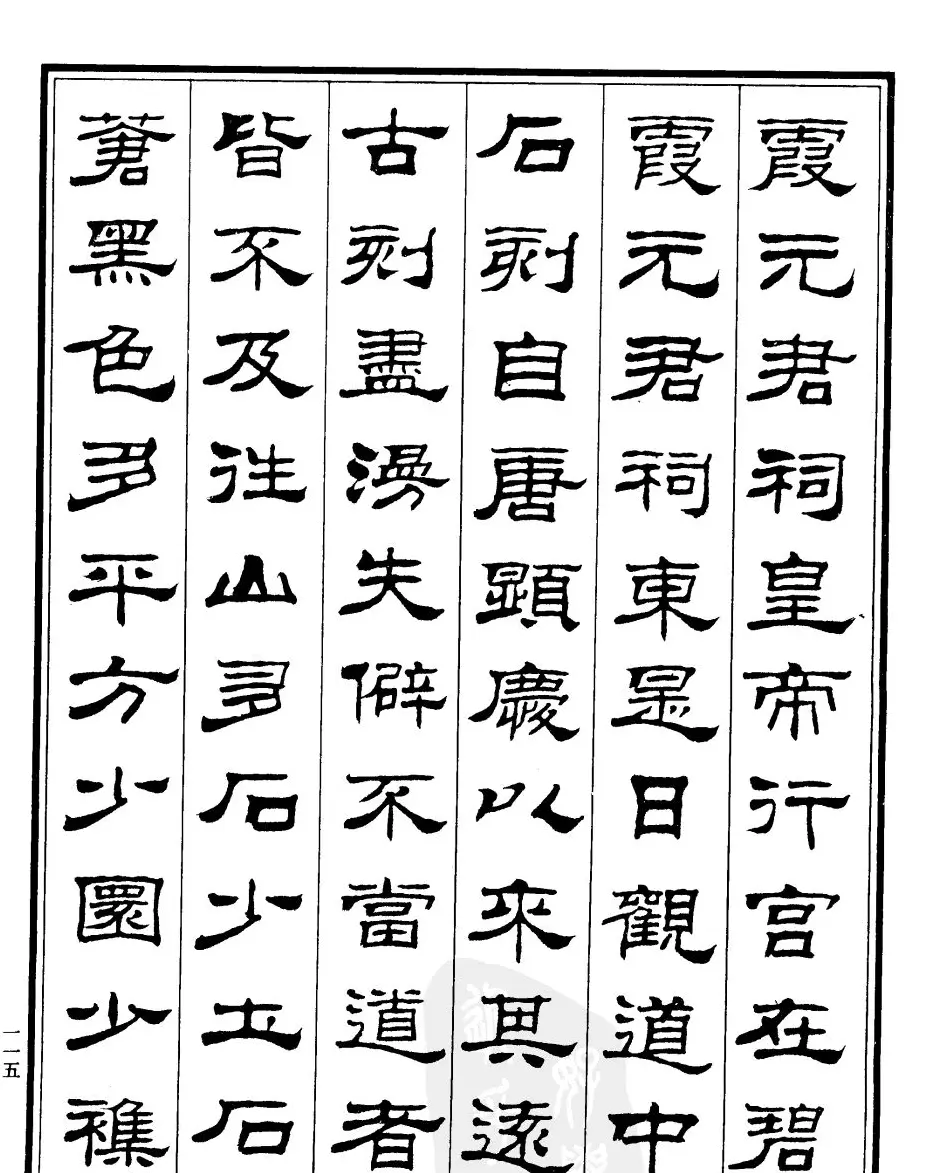 霞元君祠皇帝行宮在碧
霞元君祠東是日觀道中
石刻自唐顯慶以來其遠
古刻盡漫失僻不當道者
皆不及往山多石少土石
蒼黑色多平方少圜少雜
一一五